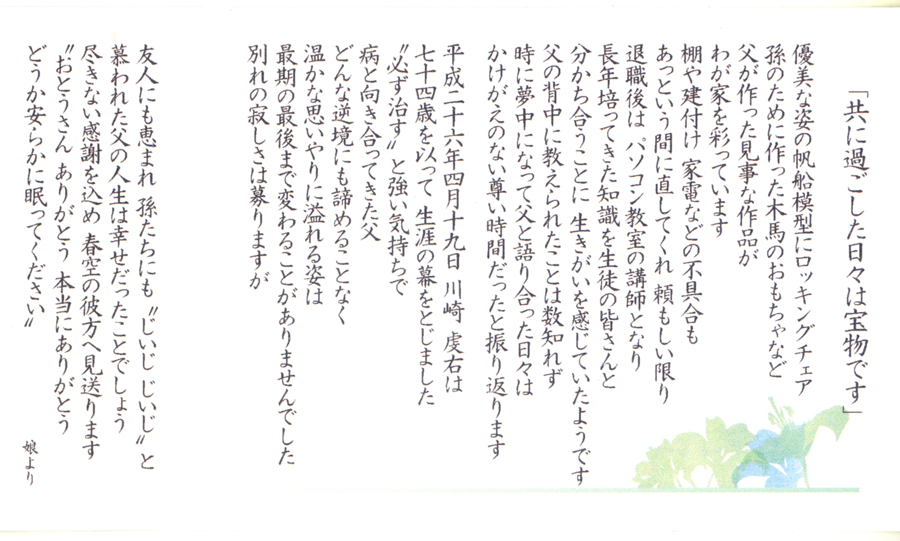 「共に過ごした日々は宝物です」
優美な姿の帆船模型にロッキングチェア
孫のために作った木馬のおもちゃなど
父が作った見事な作品が
わが家を彩っています
棚や建付け 家電などの不具合も
あっという間に直してくれ 頼もしい限り
退職後は パソコン教室の講師となり
長年培ってきた知識を生徒の皆さんと
分かち合うことに 生きがいを感じていたようです
父の背中に教えられたことは数知れず
時に夢中になって父と語り合った日々は
かけがえのない尊い時間だったと振り返ります
平成二十六年四月十九日 川崎 虔右は
七十四歳を以って 生涯の幕をとじました
〝必ず治す〟と強い気持ちで
病と向き合ってきた父
どんな逆境にも諦めることなく
温かな思いやりに溢れる姿は
最期の最後まで変わることがありませんでした
別れの寂しさは募りますが
友人にも恵まれ 孫たちにも〝じいじ じいじ〟と
慕われた父の人生は幸せだったことでしょう
尽きない感謝を込め 春空の彼方へ見送ります
〝おとうさん ありがとう 本当にありがとう
どうか安らかに眠ってください〟
娘より